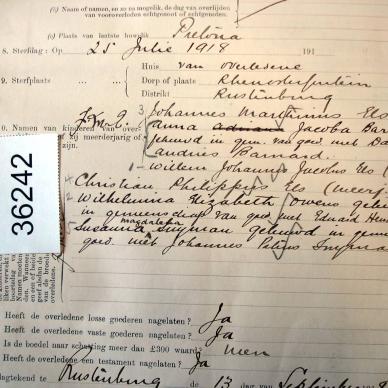 (b) Naam of namen, en zo zo mogelik, de dag van overlijden
van vooroverleden echtgenoot of echtgenoten.
(c) Plaats van laatste huwelik Pretoria
8. Sterfdag: Op 25 Julie 1918 191
Huis van overledene
9. Sterfplaats Dorp of plaats Rhenosterfontein
Distrikt Rustenburg
36242
10. Namen van kinderen van over-
zij meerderjarig of
zijn.
3 Johannes Marthinus Els
Anna Jacoba Bar
gehuwd in gem. van goed. met Da
Andries Barnard.
1 Willem Johannes Jacobus Els (
4 Christian Philippus Els (meerj
2 Wilhelmina Elizabeth Owens gehuw
in gemeenschap van goed. met Eduard Hen
Susanna Magdalena Snyman gehuwd in geme
goed. met Johannes Petrus Snyma
Heeft de overledene losse goederen nagelaten? Ja
Heeft de overledene vaste goederen nagelaten? Ja
Is de boedel naar schatting meer dan £300 waard? meer
Heeft de overledene een testament nagelaten? Ja
Rustenburg de 13 dag van September